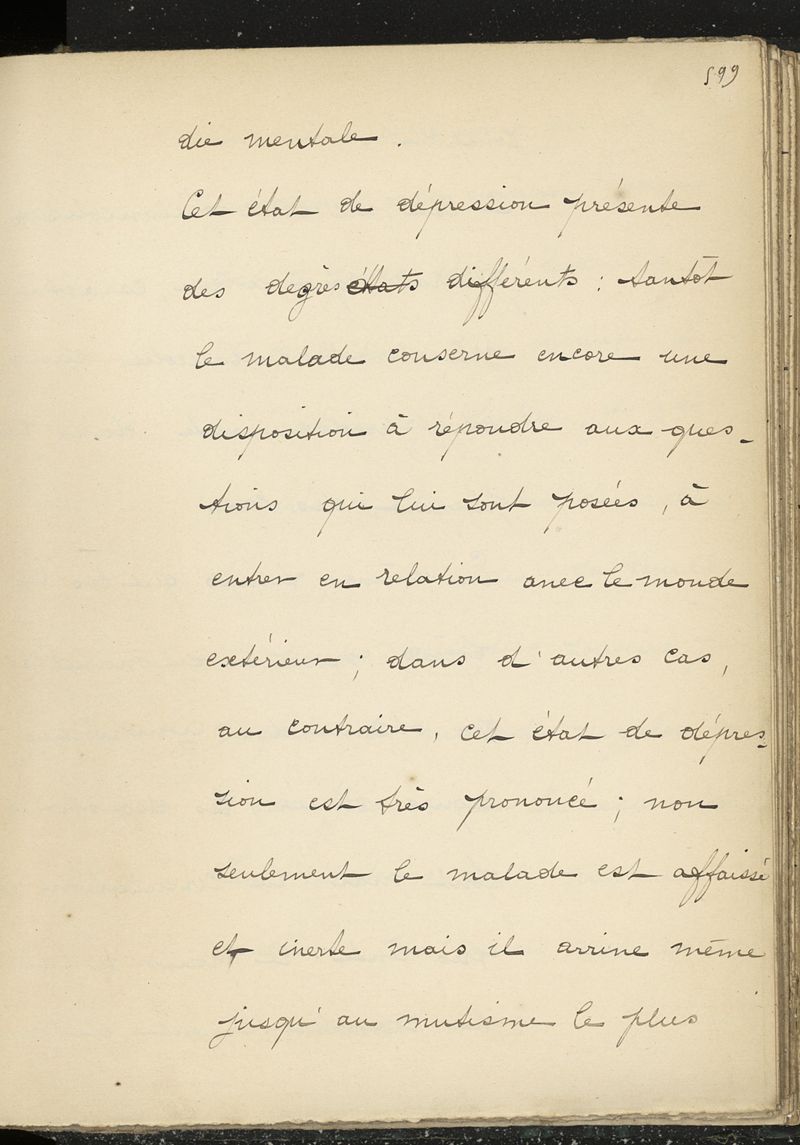 599
die mentale.
Cet état de dépression présente
des degrés états différents : tantôt
le malade conserve encore une
disposition à répondre aux ques-
tions qui lui sont posées, à
entrer en relation avec le monde
extérieur ; dans d'autres cas,
au contraire, cet état de dépres-
sion est très prononcé ; non
seulement le malade est affaissé
et inerte mais il arrive même
jusqu'au mutisme le plus